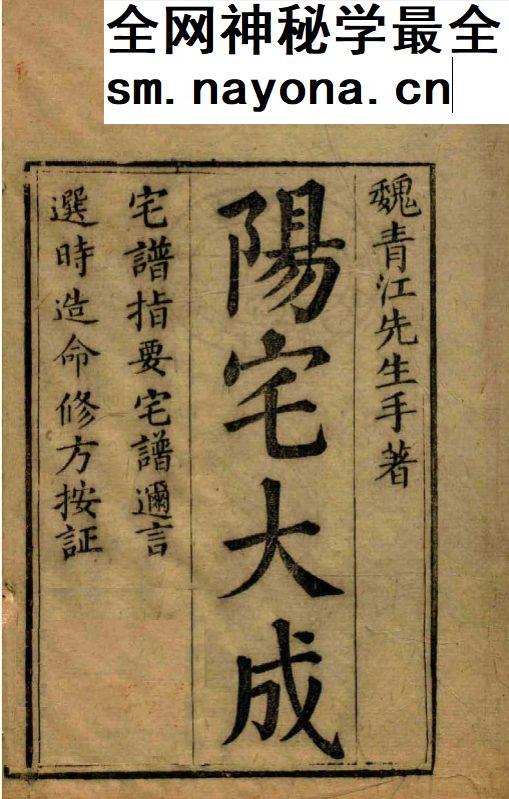 全网神秘学最全
sm.nayona.cn
魏青江先生手著
陽宅大成
宅譜指要宅譜邇言
選時造命修方按証